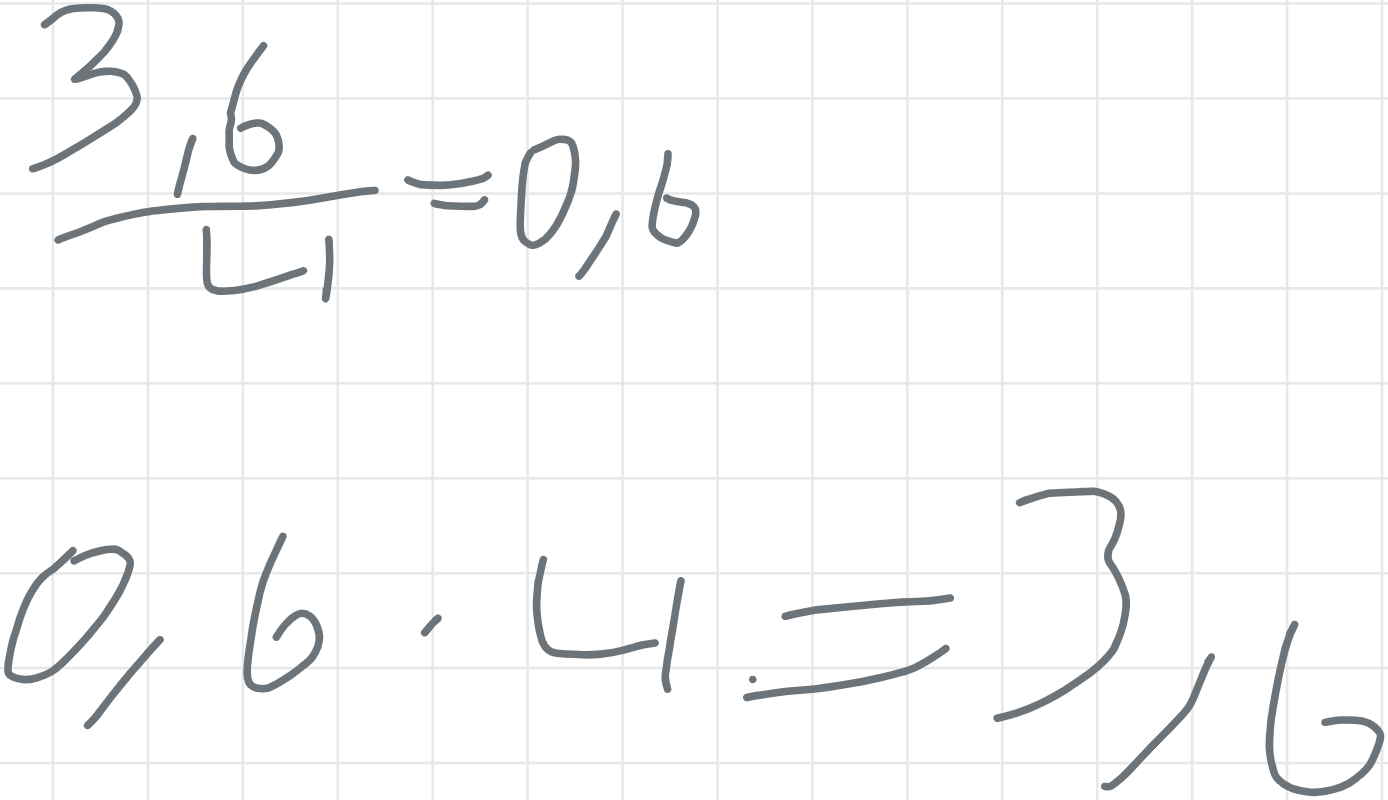 3,6
4 = 0,6
0,6 · 4 = 3,6